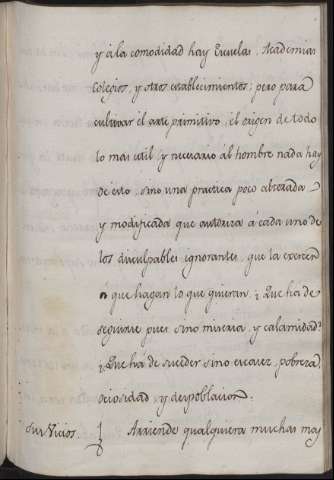 y á la comodidad hay Escuelas, Academias
Colegios, y otros establecimientos; pero para
cultivar él arte primitivo, él origen de todo
lo mas útil, y necesario ál hombre nada hay
de ésto, sino una practica poco alterada
y modificada que autoriza á cada uno de
los disculpables ignorantes, que la exercen
á que hagan lo que quieran. ¿Que ha de
seguirse pues sino miseria, y calamidad?
¿Que ha de suceder sino escasez, pobreza,
ociosidad, y despoblacion?
Sus Vicios. Arriende qualquiera muchas mas